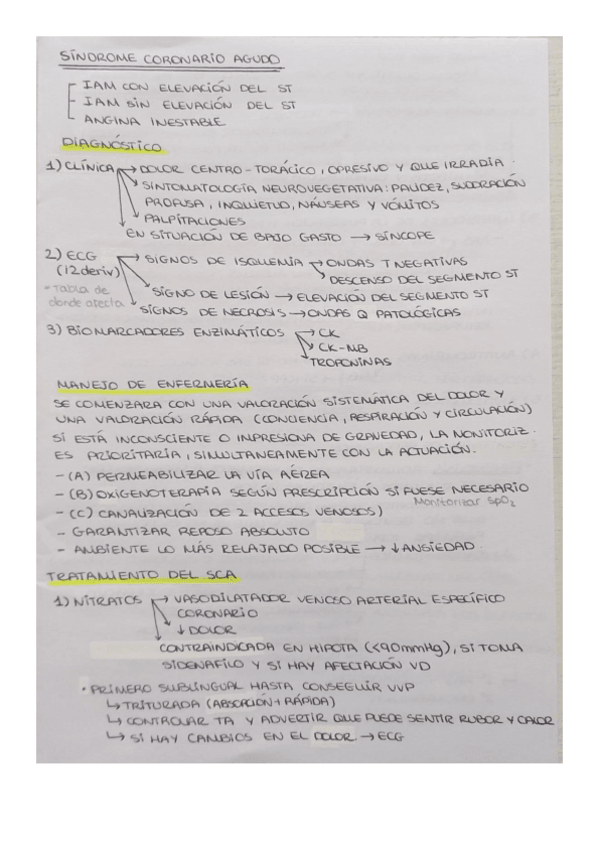 SÍNDROME CORONARIO AGUDO
IAM CON ELEVACIÓN DEL ST
IAM SIN ELEVACIÓN DEL ST
ANGINA INESTABLE
DIAGNÓSTICO
1) CLÍNICA → DOLOR CENTRO-TORÁCICO, OPRESIVO Y QUE IRRADIA.
SINTOMATOLOGÍA NEUROVEGETATIVA: PALIDEZ, SUDORACIÓN
PROFUSA, INQUIETUD, NÁUSEAS Y VÓMITOS
PALPITACIONES
EN SITUACIÓN DE BAJO GASTO → SÍNCOPE
2) ECG → SIGNOS DE ISQUEMIA → ONDAS T NEGATIVAS
(12 deriv) DESCENSO DEL SEGMENTO ST
- Tabla de SIGNO DE LESIÓN → ELEVACIÓN DEL SEGMENTO ST
donde afecta SIGNOS DE NECROSIS → ONDAS Q PATOLÓGICAS
3) BIOMARCADORES ENZIMÁTICOS → CK
CK-MB
TROPONINAS
MANEJO DE ENFERMERÍA
SE COMENZARA CON UNA VALORACIÓN SISTEMÁTICA DEL DOLOR Y
UNA VALORACIÓN RÁPIDA (CONCIENCIA, RESPIRACIÓN Y CIRCULACIÓN)
SI ESTÁ INCONSCIENTE O IMPRESIONA DE GRAVEDAD, LA MONITORIZ.
ES PRIORITARIA, SIMULTANEAMENTE CON LA ACTUACIÓN.
- (A) PERMEABILIZAR LA VÍA AÉREA
- (B) OXIGENOTERAPIA SEGÚN PRESCRIPCIÓN SI FUESE NECESARIO
Monitorizar SpO2
- (C) CANALIZACIÓN DE 2 ACCESOS VENOSOS)
- GARANTIZAR REPOSO ABSOLUTO
- AMBIENTE LO MÁS RELAJADO POSIBLE → ↓ ANSIEDAD.
TRATAMIENTO DEL SCA
1) NITRATOS → VASODILATADOR VENOSO ARTERIAL ESPECÍFICO
CORONARIO
↓ DOLOR
CONTRAINDICADA EN HIPOTA (<90mmHg), SI TOMA
SIDENAFILO Y SI HAY AFECTACIÓN VD
• PRIMERO SUBLINGUAL HASTA CONSEGUIR VVP
↳ TRITURADA (ABSORCIÓN + RÁPIDA)
↳ CONTROLAR TA Y ADVERTIR QUE PUEDE SENTIR RUBOR Y CALOR
↳ SI HAY CAMBIOS EN EL DOLOR → ECG